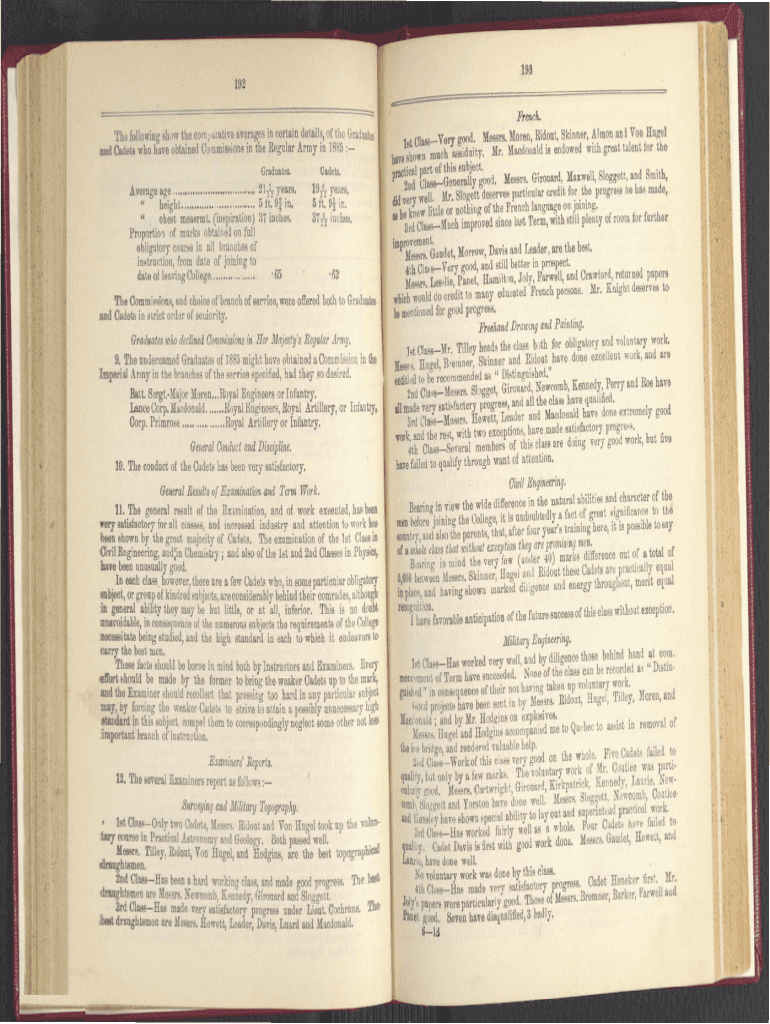 192
The following show the comparative averages in certain details, of the Graduates
and Cadets who have obtained Commissions in the Regular Army in 1885 :—
Graduates. Cadets.
Average age ............ years. years.
“ height ............ 5 ft. 9¾ in. 5 ft. 9½ in.
“ chest measrmt. (inspiration) 37 inches. inches.
Proportion of marks obtained on full
obligatory course in all branches of
instruction, from date of joining to
date of leaving College ............ ·65 ·63
The Commissions, and choice of branch of service, were offered both to Graduates
and Cadets in strict order of seniority.
Graduates who declined Commissions in Her Majesty's Regular Army.
9. The undernamed Graduates of 1885 might have obtained a Commission in the
Imperial Army in the branches of the service specified, had they so desired.
Batt. Sergt.-Major Moren...Royal Engineers or Infantry.
Lance Corp. Macdonald......Royal Engineers, Royal Artillery, or Infantry,
Corp. Primrose ............Royal Artillery or Infantry.
General Conduct and Discipline.
10. The conduct of the Cadets has been very satisfactory.
General Results of Examination and Term Work.
11. The general result of the Examination, and of work executed, has been
very satisfactory for all classes, and increased industry and attention to work has
been shown by the great majority of Cadets. The examination of the 1st Class in
Civil Engineering, and in Chemistry ; and also of the 1st and 2nd Classes in Physics,
have been unusually good.
In each class however, there are a few Cadets who, in some particular obligatory
subject, or group of kindred subjects, are considerably behind their comrades, although
in general ability they may be but little, or at all, inferior. This is no doubt
unavoidable, in consequence of the numerous subjects the requirements of the College
necessitate being studied, and the high standard in each to which it endeavors to
carry the best men.
These facts should be borne in mind both by Instructors and Examiners. Every
effort should be made by the former to bring the weaker Cadets up to the mark,
and the Examiner should recollect that pressing too hard in any particular subject
may, by forcing the weaker Cadets to strive to attain a possibly unnecessary high
standard in this subject, compel them to correspondingly neglect some other not less
important branch of instruction.
Examiners' Reports.
12. The several Examiners report as follows :—
Surveying and Military Topography.
1st Class—Only two Cadets, Messrs. Ridout and Von Hugel took up the volun-
tary course in Practical Astronomy and Geology. Both passed well.
Messrs. Tilley, Ridout, Von Hugel, and Hodgins, are the best topographical
draughtsmen.
2nd Class—Has been a hard working class, and made good progress. The best
draughtsmen are Messrs. Newcomb, Kennedy, Girouard and Sloggett.
3rd Class—Has made very satisfactory progress under Lieut. Cochrane. The
best draughtsmen are Messrs. Hewett, Leader, Davis, Luard and Macdonald.
193
French.
1st Class—Very good. Messrs. Moren, Ridout, Skinner, Almon and Von Hugel
have shown much assiduity. Mr. Macdonald is endowed with great talent for the
practical part of this subject.
2nd Class—Generally good. Messrs. Girouard, Maxwell, Sloggett, and Smith,
did very well. Mr. Slogett deserves particular credit for the progress he has made,
as he knew little or nothing of the French language on joining.
3rd Class—Much improved since last Term, with still plenty of room for further
improvement.
Messrs. Gaudet, Morrow, Davis and Leader, are the best.
4th Class—Very good, and still better in prospect.
Messrs. Lesslie, Panet, Hamilton, Joly, Farwell, and Crawford, returned papers
which would do credit to many educated French persons. Mr. Knight deserves to
be mentioned for good progress.
Freehand Drawing and Painting.
1st Class—Mr. Tilley heads the class both for obligatory and voluntary work.
Messrs. Hugel, Bremner, Skinner and Ridout have done excellent work, and are
entitled to be recommended as “ Distinguished.”
2nd Class—Messrs. Slogget, Girouard, Newcomb, Kennedy, Perry and Roe have
all made very satisfactory progress, and all the class have qualified.
3rd Class—Messrs. Hewett, Leader and Macdonald have done extremely good
work, and the rest, with two exceptions, have made satisfactory progress.
4th Class—Several members of this class are doing very good work, but five
have failed to qualify through want of attention.
Civil Engineering.
Bearing in view the wide difference in the natural abilities and character of the
men before joining the College, it is undoubtedly a fact of great significance to the
country, and also the parents, that, after four year's training here, it is possible to say
of a whole class that without exception they are promising men.
Bearing in mind the very few (under 40) marks difference out of a total of
3,600 between Messrs. Skinner, Hugel and Ridout these Cadets are practically equal
in place, and having shown marked diligence and energy throughout, merit equal
recognition.
I have favorable anticipation of the future success of this class without exception.
Military Engineering.
1st Class—Has worked very well, and by diligence those behind hand at com-
mencement of Term have succeeded. None of the class can be recorded as “ Distin-
guished” in consequence of their not having taken up voluntary work.
Good projects have been sent in by Messrs. Ridout, Hugel, Tilley, Moren, and
Macdonald ; and by Mr. Hodgins on explosives.
Messrs. Hugel and Hodgins accompanied me to Quebec to assist in removal of
the ice bridge, and rendered valuable help.
2nd Class—Work of this class very good on the whole. Five Cadets failed to
qualify, but only by a few marks. The voluntary work of Mr. Coutlee was parti-
cularly good. Messrs. Cartwright, Girouard, Kirkpatrick, Kennedy, Laurie, New-
comb, Sloggett and Yorston have done well. Messrs. Sloggett, Newcomb, Coutlee
and Hensley have shown special ability to lay out and superintend practical work.
3rd Class—Has worked fairly well as a whole. Four Cadets have failed to
qualify. Cadet Davis is first with good work done. Messrs. Gaudet, Hewett, and
Laurie, have done well.
No voluntary work was done by this class.
4th Class—Has made very satisfactory progress. Cadet Heneker first. Mr.
Joly's papers were particularly good. Those of Messrs. Bremner, Barker, Farwell and
Panet good. Seven have disqualified, 3 badly.